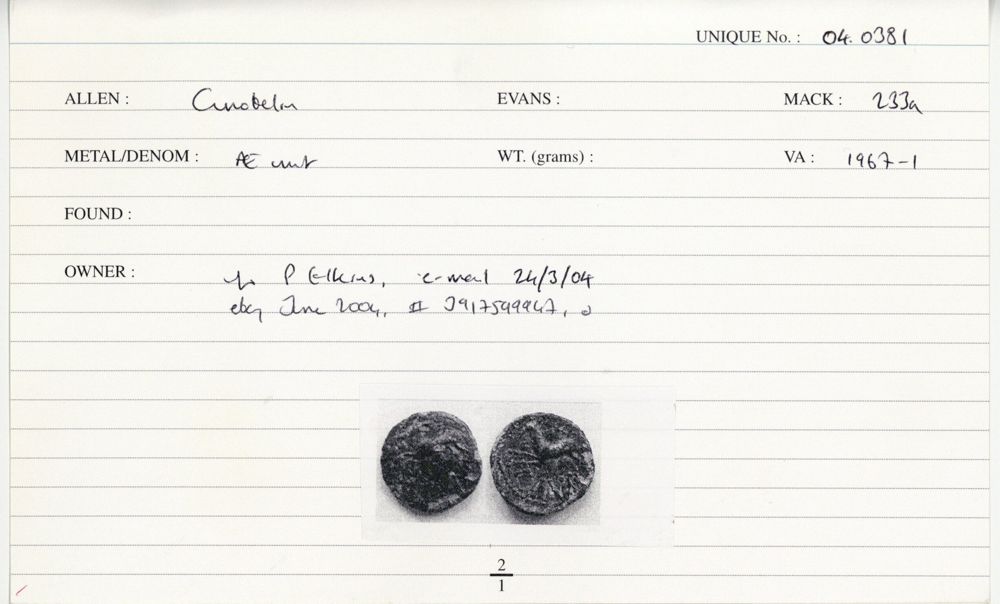 UNIQUE No. : 04.0381
ALLEN : Cunobelin EVANS : MACK : 233a
METAL/DENOM : Æ unit WT. (grams) : VA : 1967-1
FOUND :
OWNER : P Elkins, e-mail 24/3/04
ebay June 2004, # 3917599947,
2
1